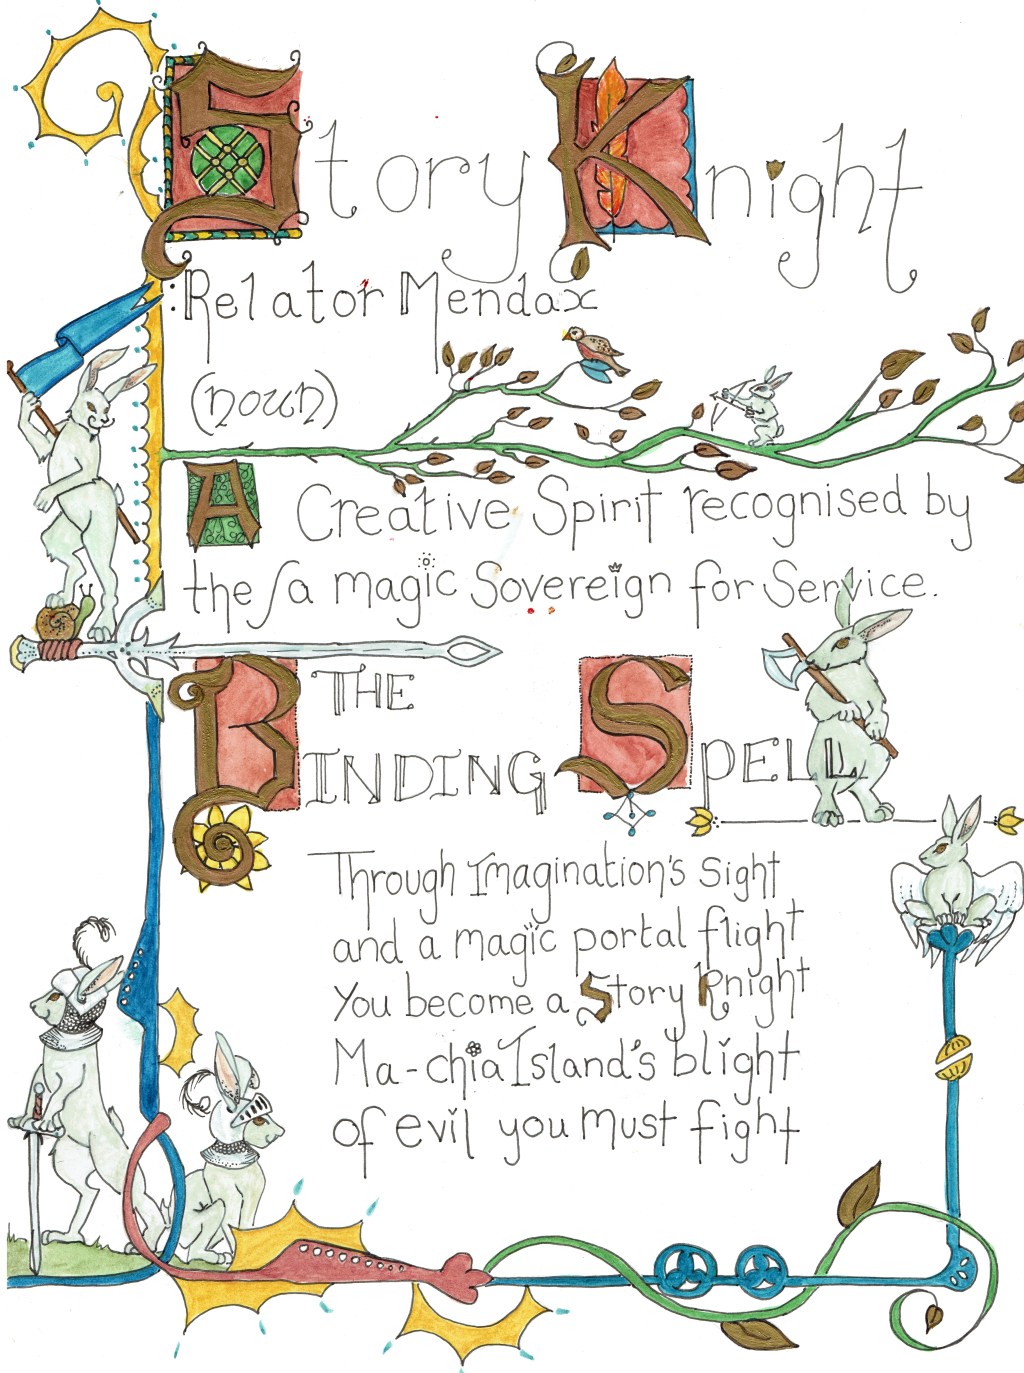 Story Knight
:Relator Mendax
(noun)
A Creative Spirit recognised by
the/a magic Sovereign for Service.
THE
BINDING SPELL
Through Imagination's sight
and a magic portal flight
You become a Story Knight
Ma-chia Island's blight
of evil you must fight